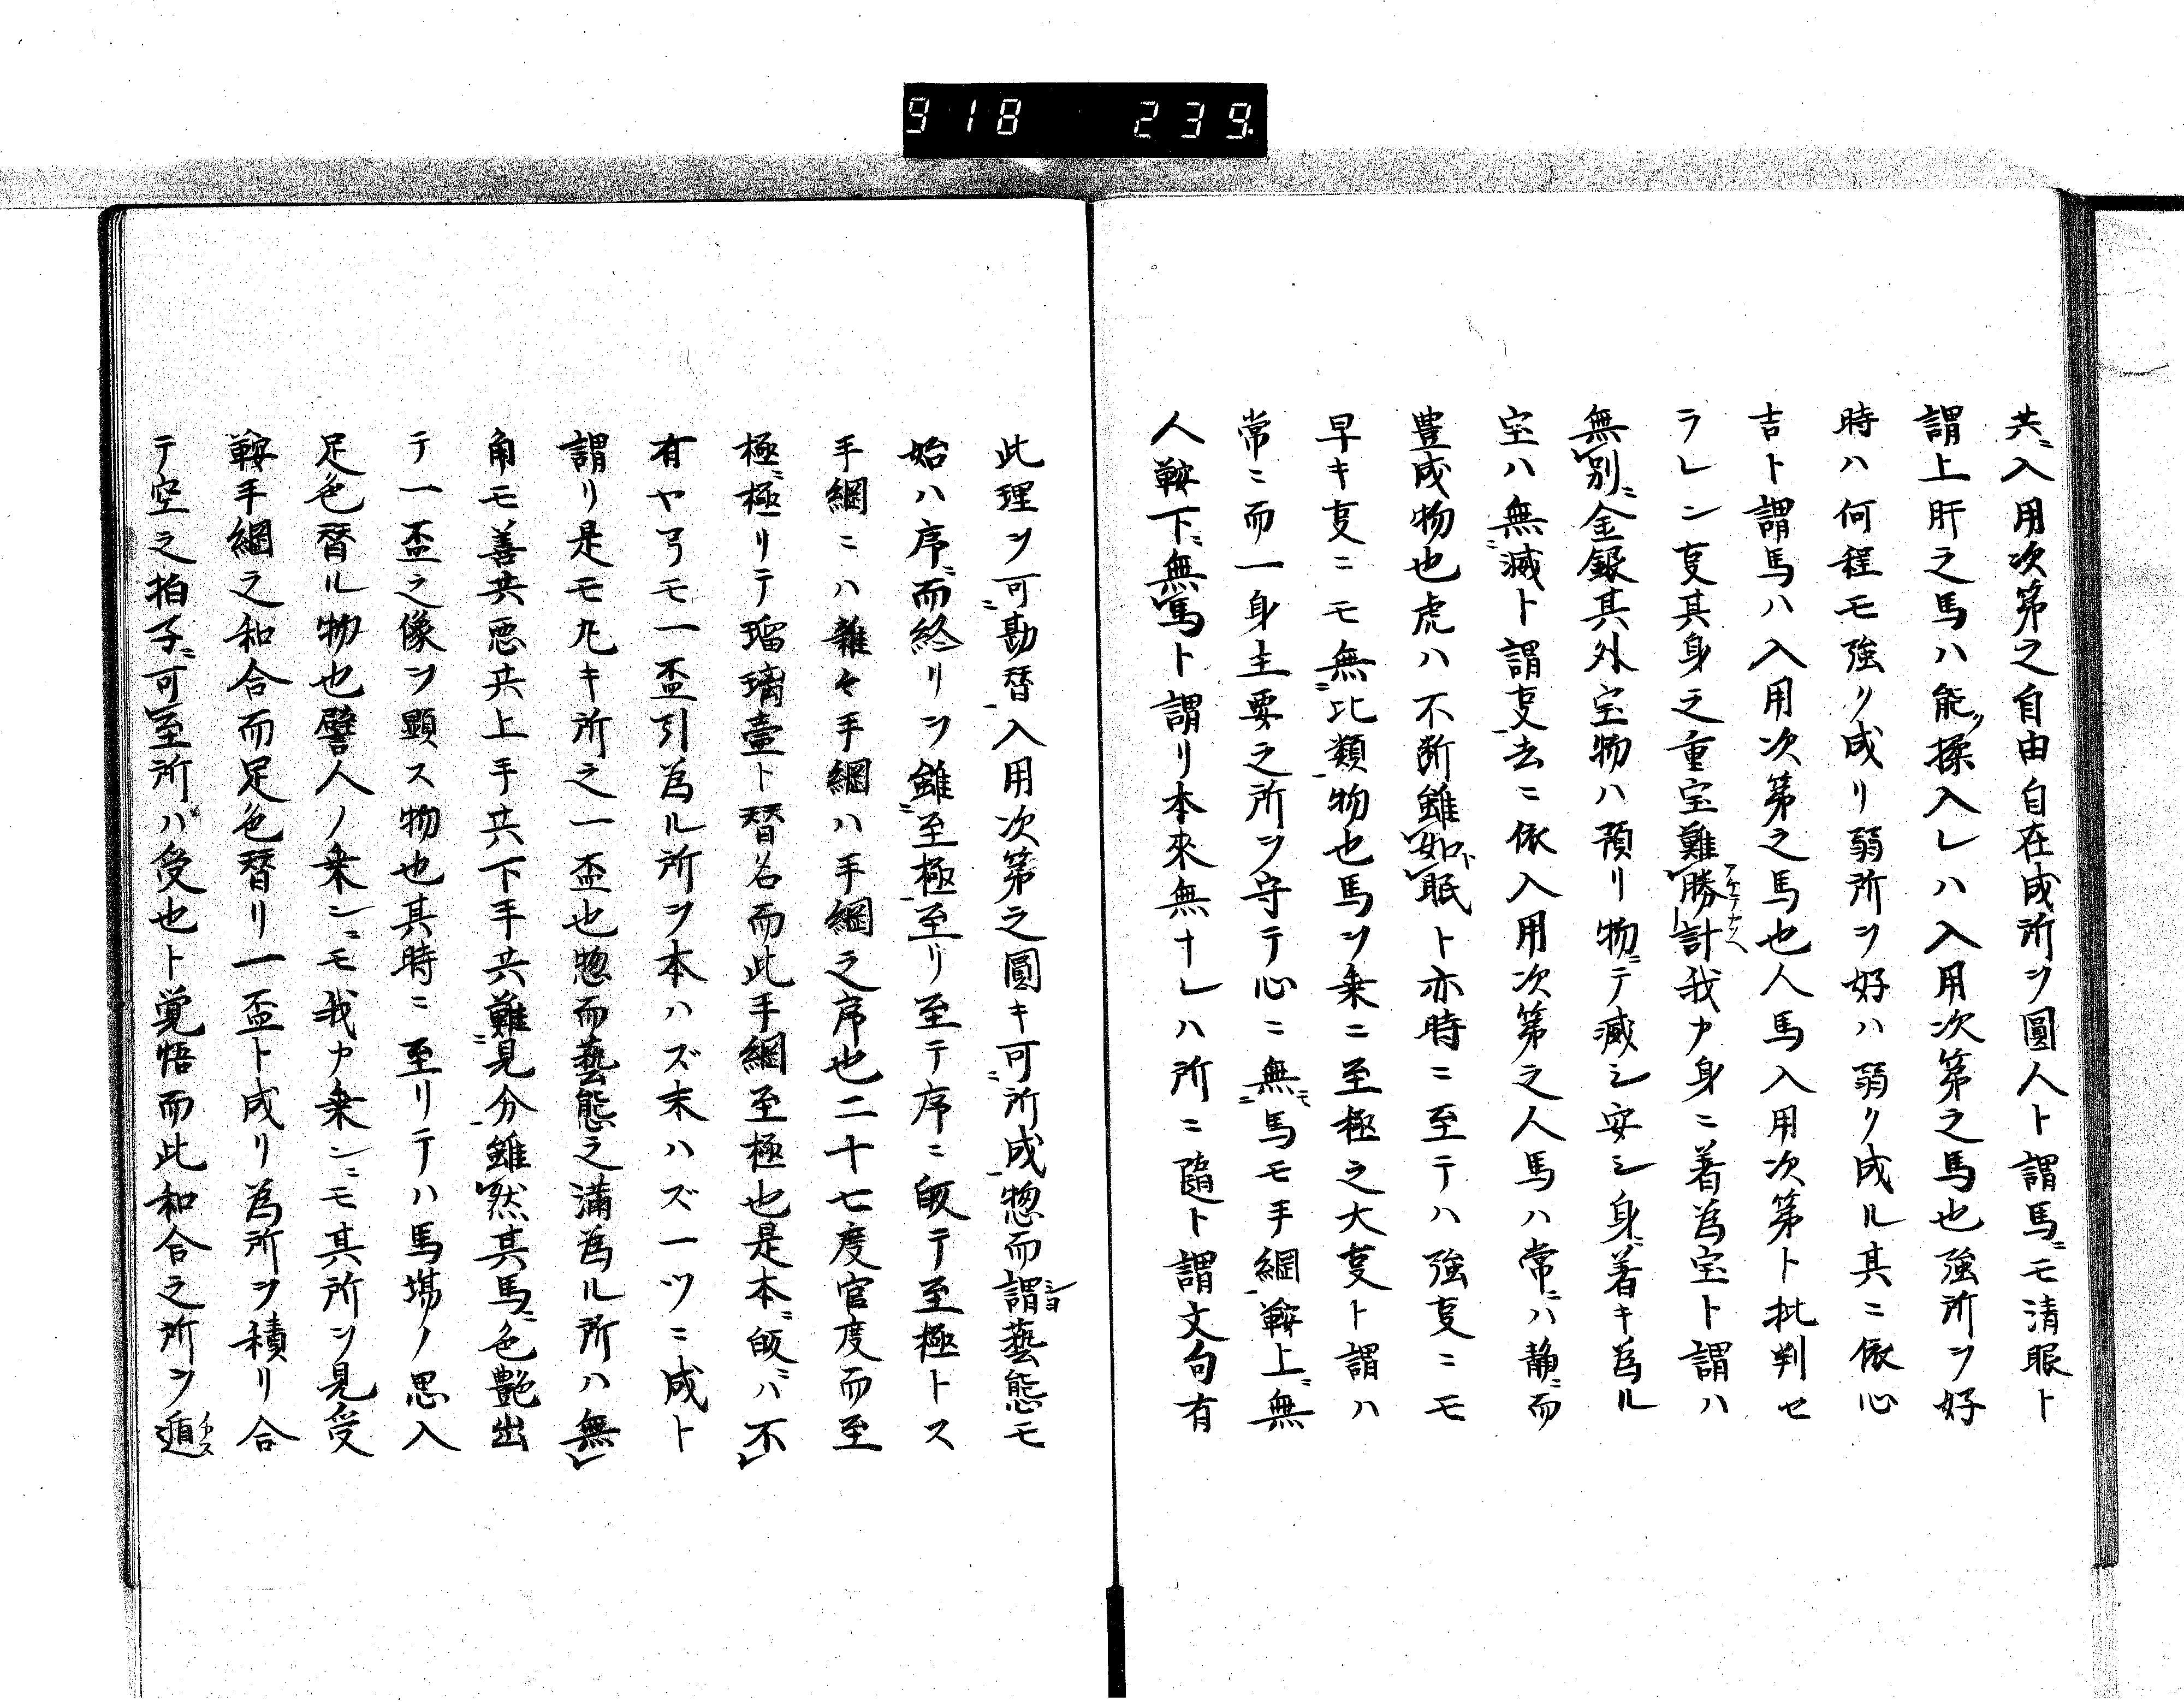 918 239.
共ニ入用次第之自由自在成所ヲ圓人ト謂馬ニモ清眼ト
謂上肝之馬ハ能ク揉入レハ入用次第之馬也強所ヲ好
時ハ何程モ強リ成リ弱所ヲ好ハ弱ク成ル其ニ依心
吉ト謂馬ハ入用次第之馬也人馬入用次第ト批判セ
ラレン㕝其身之重宝難勝計我カ身ニ著為宝ト謂ハ
無別ニ金銀其外宝物ハ預リ物ニテ減シ安シ身ニ著キ為ル
宝ハ無減ト謂㕝去ニ依入用次第之人馬ハ常ニハ静ニ而
豊成物也虎ハ不断雖如眠ト亦時ニ至テハ強㕝ニモ
早キ㕝ニモ無比類物也馬ヲ乗ニ至極之大㕝ト謂ハ
常ニ而一身主要之所ヲ守テ心ニ無モ馬モ手綱鞍上ニ無
人鞍下ニ無馬ト謂リ本來無ナレハ所ニ随ト謂文句有
此理ヲ可勘替入用次第之圓キ可所成惣而謂藝態モ
始ハ序ニ而終リヲ雖至極至リ至テ序ニ皈テ至極トス
手綱ニハ雜々手綱ハ手綱之序也二十七度官度而至
極ニ極リテ瑠璃壷ト替名而此手綱至極也是本ニ皈ニハ不
有ヤ弓モ一盃引為ル所ヲ本ハズ末ハズ一ツニ成ト
謂リ是モ丸キ所之一盃也惣而藝態之満為ル所ハ無
角モ善共悪共上手共下手共難見分雖然其馬ニ色艶出
テ一盃之像ヲ顕ス物也其時ニ至リテハ馬場ノ思入
足色替ル物也譬人ノ乗ンニモ我カ乗ンニモ其所ヲ見受
鞍手綱之和合而足色替リ一盃ト成リ為所ヲ積リ合
テ空之拍子ニ可至所ハ受也ト覚悟而此和合之所ヲ遁